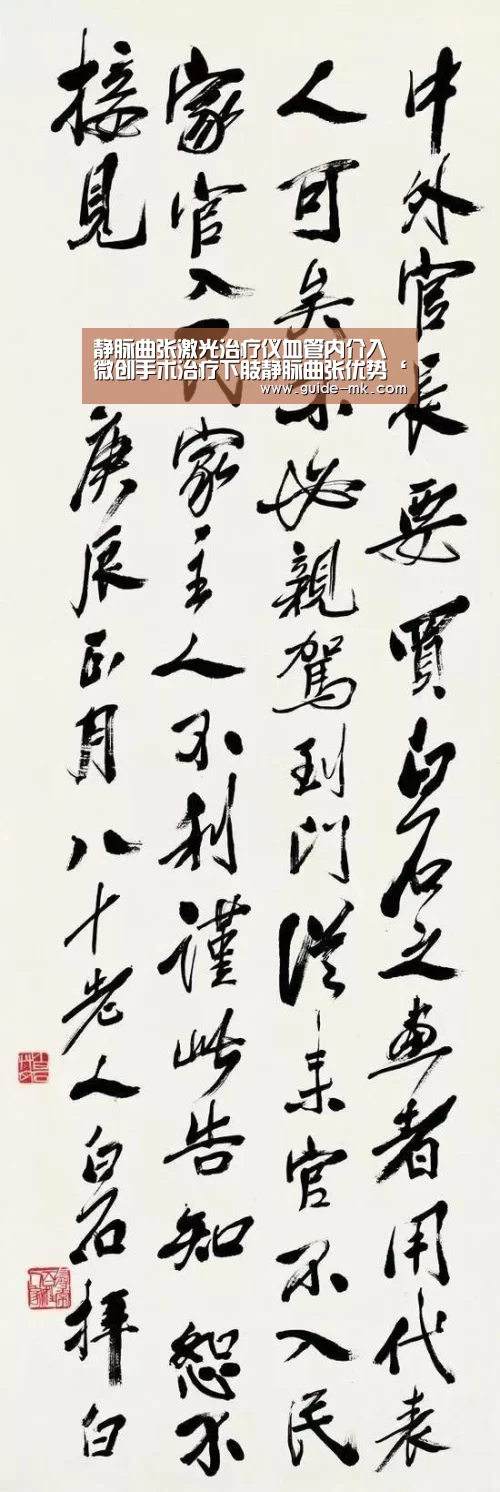 中外官長要買白石之畫者用代表
人可矣不必親駕到門從来官不入民
家官入民家主人不利謹此告知恕不
接見
庚辰正月八十老人白石拜白
静脉曲张激光治疗仪血管内介入
微创手术治疗下肢静脉曲张优势‘
www.guide-mk.com